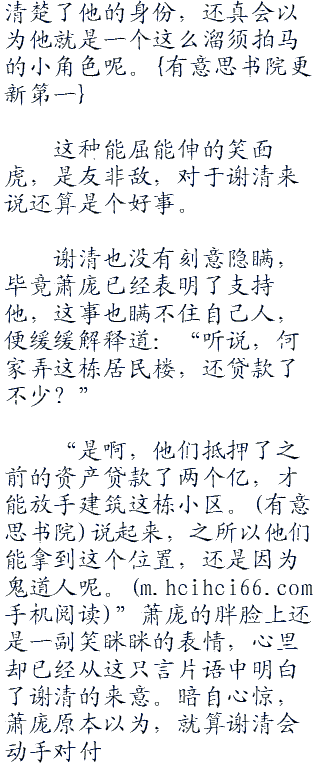 清楚了他的身份，还真会以
为他就是一个这么溜须拍马
的小角色呢。{有意思书院更
新第一}
这种能屈能伸的笑面
虎，是友非敌，对于谢清来
说还算是个好事。
谢清也没有刻意隐瞒，
毕竟萧庞已经表明了支持
他，这事也瞒不住自己人，
便缓缓解释道：“听说，何
家弄这栋居民楼，还贷款了
不少？”
“是啊，他们抵押了之
前的资产贷款了两个亿，才
能放手建筑这栋小区。(有意
思书院)说起来，之所以他们
能拿到这个位置，还是因为
鬼道人呢。(m.hcihci66.com
手机阅读)”萧庞的胖脸上还
是一副笑眯眯的表情，心里
却已经从这只言片语中明白
了谢清的来意。暗自心惊，
萧庞原本以为，就算谢清会
动手对付